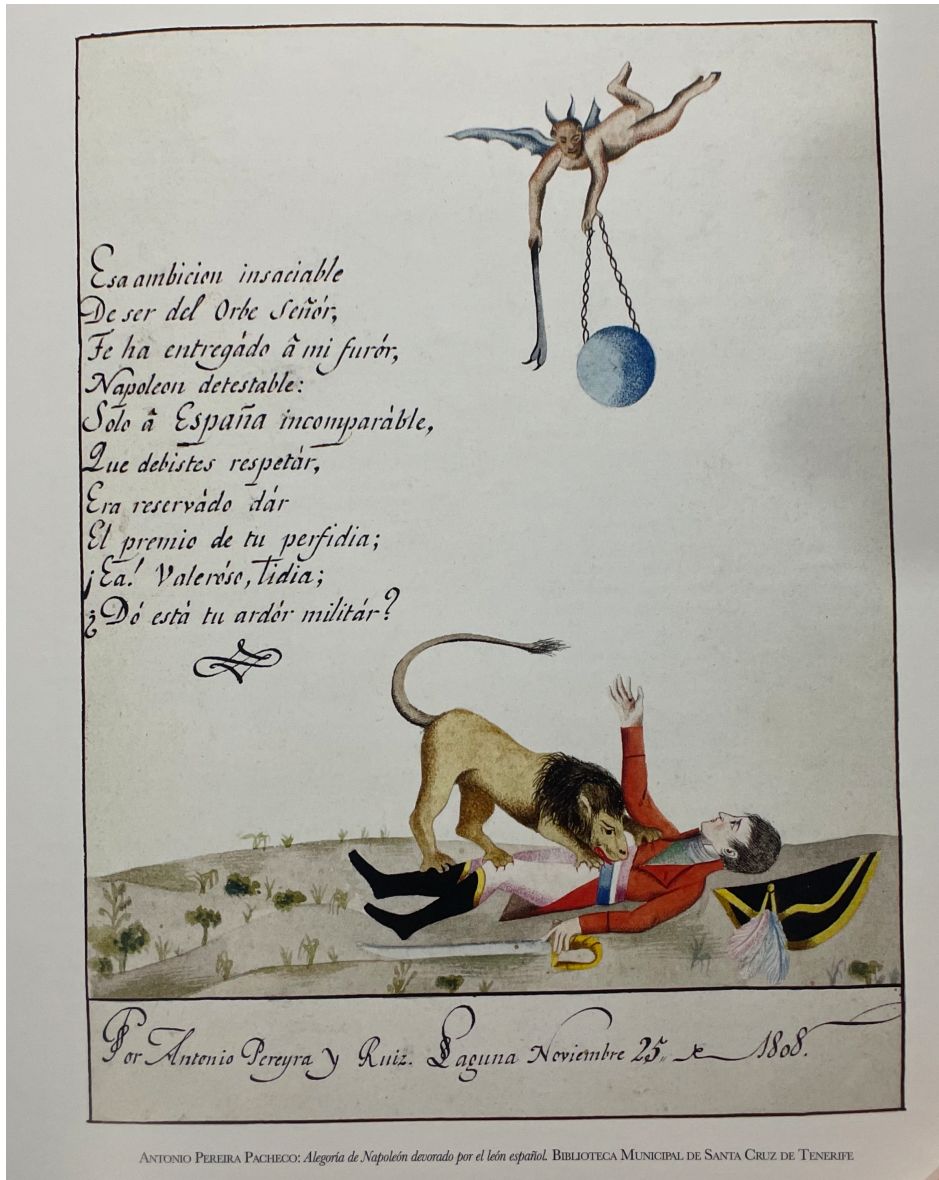 Esa ambicion insaciable
De ser del Orbe Señór,
Te ha entregádo â mi furór,
Napoleon detestable:
Sólo â España incomparáble,
Que debistes respetár,
Era reservádo dár
El premio de tu perfidia;
¡Ea! Valeróso, lidia;
¿Dó está tu ardór militár?
Por Antonio Pereyra y Ruiz. Laguna Noviembre 25,, de 1808.
ANTONIO PEREIRA PACHECO: Alegoría de Napoleón devorado por el león español. BIBLIOTECA MUNICIPAL DE SANTA CRUZ DE TENERIFE